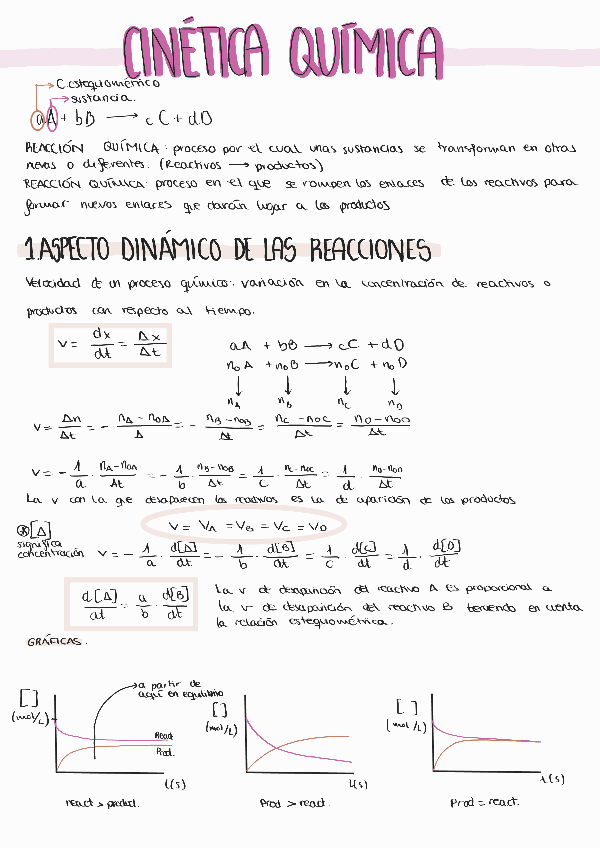 CINÉTICA QUÍMICA
C.estequiométrico
sustancia.
aA + bB → cC + dD
REACCIÓN QUÍMICA: proceso por el cual unas sustancias se transforman en otras
nevas o diferentes. (Reactivos → productos)
REACCIÓN QUÍMICA: proceso en el que se rompen los enlaces de los reactivos para
formar nuevos enlaces que darán lugar a los productos
1.ASPECTO DINÁMICO DE LAS REACCIONES
Velocidad de un proceso químico: variación en la concentración de reactivos o
productos con respecto al tiempo.
v = dx/dt = Δx/Δt
aA + bB → cC + dD
n₀A + n₀B → n₀C + n₀D
↓ ↓ ↓ ↓
nA nB nC nD
v = Δn/Δt = - nA - n₀A/Δ = - nB - n₀B/Δt = nC - n₀C/Δt = nD - n₀D/Δt
v = - 1/a · nA - n₀A/Δt = - 1/b · nB - n₀B/Δt = 1/c · nC - n₀C/Δt = 1/d · nD - n₀D/Δt
La v con la que desaparecen los reactivos es la de aparición de los productos
v = vA = vB = vC = vD
⊛[A]
significa
concentración
v = - 1/a · d[A]/dt = - 1/b · d[B]/dt = 1/c · d[C]/dt = 1/d · d[D]/dt
d[A]/dt = a/b · d[B]/dt
La v de desaparición del reactivo A es proporcional a
la v de desaparición del reactivo B teniendo en cuenta
la relación estequiométrica.
GRÁFICAS.
a partir de
aquí en equilibrio
[ ]
(mol/L)
React
Prod.
t(s)
react > product.
[ ]
(mol/L)
t(s)
Prod > react.
[ ]
(mol/L)
t(s)
Prod = react.